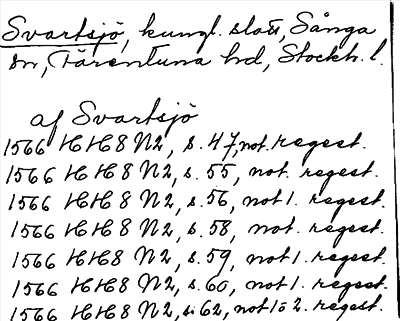 Svartsjö, kungl. slott, Sånga
sn, Färentuna hd, Stockh. l.
af Svartsjö
1566 HH8 N2, s. 47, not. regest.
1566 HH8 N2, s. 55, not. regest.
1566 HH8 N2, s. 56, not 1. regest.
1566 HH8 N2, s. 58, not. regest.
1566 HH8 N2, s. 59, not 1. regest.
1566 HH8 N2, s. 60, not 1. regest.
1566 HH8 N2, s. 62, not 1 o 2. regest.